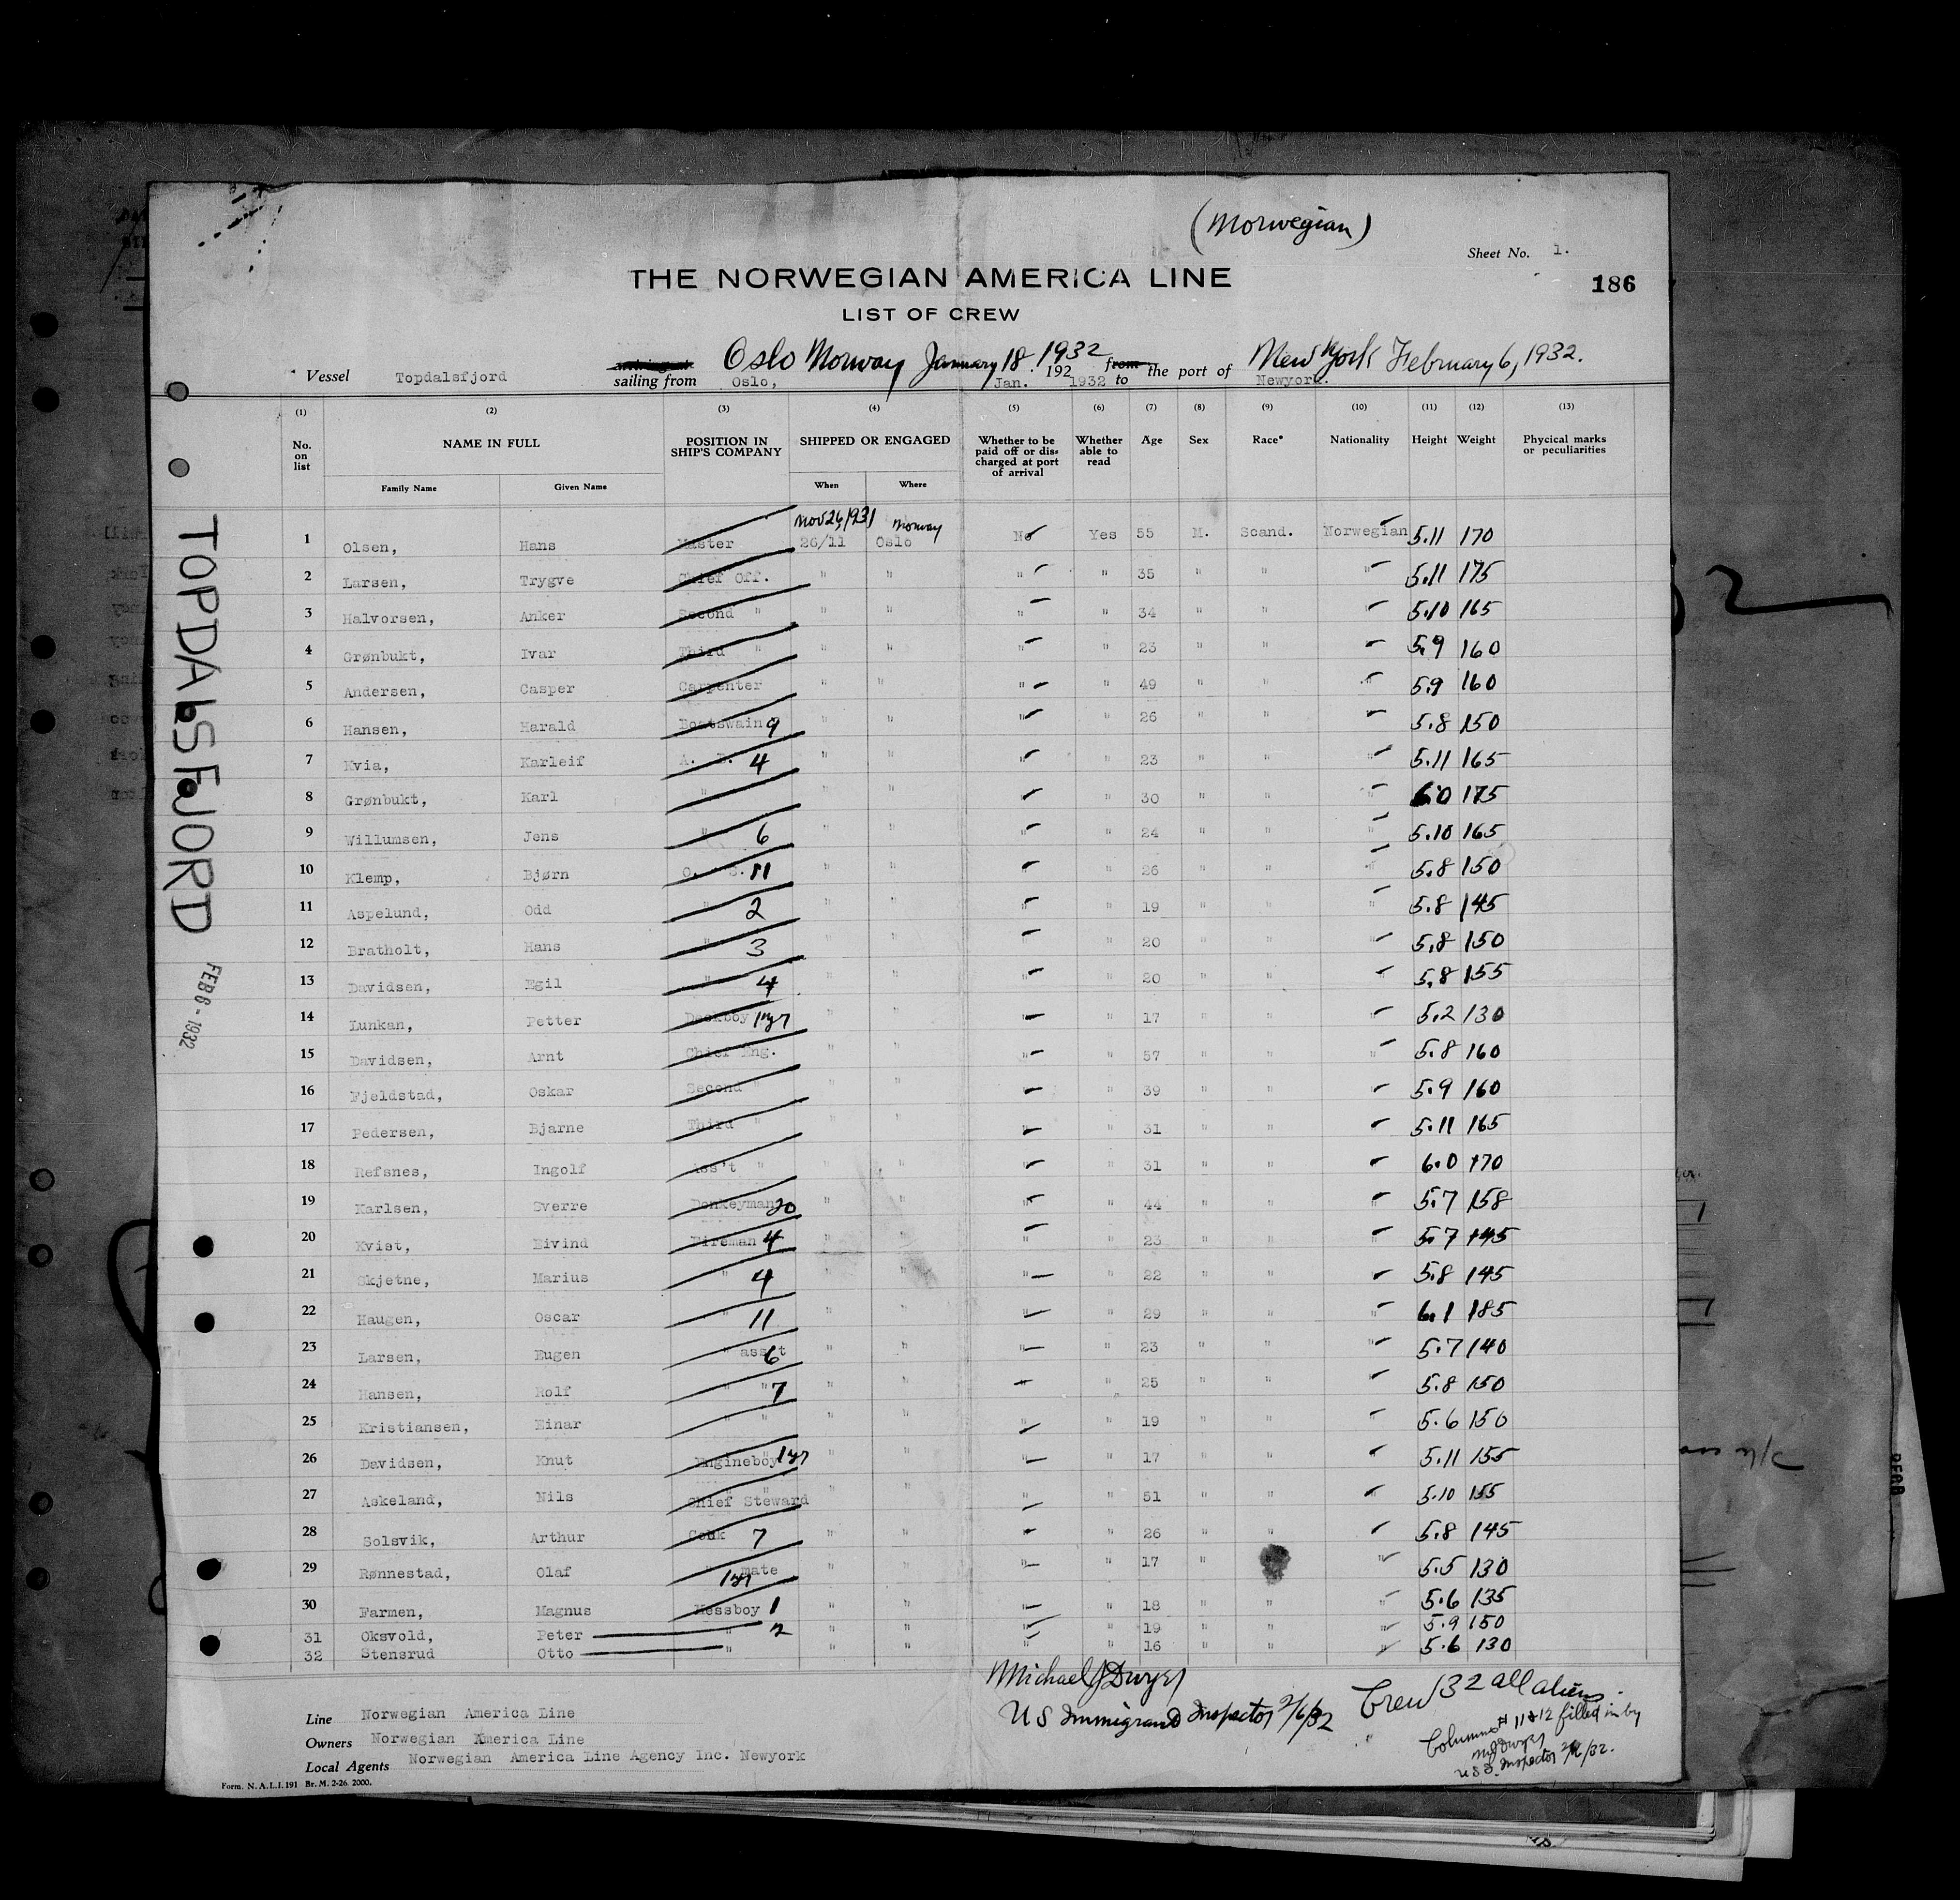 (Norwegian)
Sheet No. 1.
THE NORWEGIAN AMERICA LINE
186
LIST OF CREW
Oslo Norway January 18. 1932 New York February 6, 1932.
Vessel Topdalsfjord sailing from Oslo, Jan. 192 1932 from to the port of Newyork.
(1) (2) (3) (4) (5) (6) (7) (8) (9) (10) (11) (12) (13)
No. on list NAME IN FULL POSITION IN SHIP'S COMPANY SHIPPED OR ENGAGED Whether to be paid off or discharged at port of arrival Whether able to read Age Sex Race* Nationality Height Weight Physical marks or peculiarities
Family Name Given Name When Where
Nov 26, 1931 Norway
1 Olsen, Hans Master 26/11 Oslo No Yes 55 M. Scand. Norwegian 5.11 170
2 Larsen, Trygve Chief Off. " " " " 35 " " " 5.11 175
3 Halvorsen, Anker Second " " " " " 34 " " " 5.10 165
4 Grønbukt, Ivar Third " " " " " 23 " " " 5.9 160
5 Andersen, Casper Carpenter " " " " 49 " " " 5.9 160
6 Hansen, Harald Boatswain 9 " " " " 26 " " " 5.8 150
7 Kvia, Karleif A. B. 4 " " " " 23 " " " 5.11 165
8 Grønbukt, Karl " " " " " 30 " " " 6.0 175
9 Willumsen, Jens " 6 " " " " 24 " " " 5.10 165
10 Klemp, Bjørn O. S. 11 " " " " 26 " " " 5.8 150
11 Aspelund, Odd " 2 " " " " 19 " " " 5.8 145
12 Bratholt, Hans " 3 " " " " 20 " " " 5.8 150
13 Davidsen, Egil " 4 " " " " 20 " " " 5.8 155
14 Lunkan, Petter Deckboy 1 yr " " " " 17 " " " 5.2 130
15 Davidsen, Arnt Chief Eng. " " " " 57 " " " 5.8 160
16 Fjeldstad, Oskar Second " " " " " 39 " " " 5.9 160
17 Pedersen, Bjarne Third " " " " " 31 " " " 5.11 165
18 Refsnes, Ingolf Ass't " " " " " 31 " " " 6.0 170
19 Karlsen, Sverre Donkeyman 20 " " " " 44 " " " 5.7 158
20 Kvist, Eivind Fireman 4 " " " " 23 " " " 5.7 145
21 Skjetne, Marius " 4 " " " " 22 " " " 5.8 145
22 Haugen, Oscar " 11 " " " " 29 " " " 6.1 185
23 Larsen, Eugen " ass't 6 " " " " 23 " " " 5.7 140
24 Hansen, Rolf " " 7 " " " " 25 " " " 5.8 150
25 Kristiansen, Einar " " " " " " 19 " " " 5.6 150
26 Davidsen, Knut Engineboy 1 yr " " " " 17 " " " 5.11 155
27 Askeland, Nils Chief Steward " " " " 51 " " " 5.10 155
28 Solsvik, Arthur Cook 7 " " " " 26 " " " 5.8 145
29 Rønnestad, Olaf " mate 1 yr " " " " 17 " " 5.5 130
30 Farmen, Magnus Messboy 1 " " " " 18 " " " 5.6 135
31 Oksvold, Peter " 2 " " " " 19 " " " 5.9 150
32 Stensrud Otto " " " " " 16 " " " 5.6 130
Michael J Dwyer
US Immigrant Inspector 2/6/32
Crew 32 all aliens.
Columns # 11 & 12 filled in by
MJ Dwyer
US Inspector 2/6/32.
Line Norwegian America Line
Owners Norwegian America Line
Local Agents Norwegian America Line Agency Inc. Newyork
Form. N. A. L. I. 191 Br. M. 2-26. 2000.
TOPDALSFJORD
FEB 6 - 1932